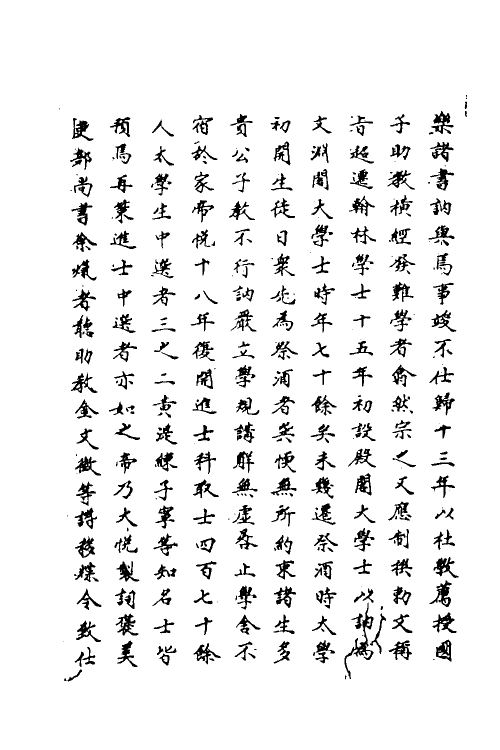 樂諸書訥與焉事竣不仕歸十三年以杜斅薦授國
子助教橫經發難學者翕然宗之又應制撰勅文稱
旨超遷翰林學士十五年初設殿閣大學士以訥爲
文淵閣大學士時年七十餘矣未幾遷祭酒時太學
初開生徒日衆先爲祭酒者耎愞無所約束諸生多
貴公子教不行訥嚴立學規講解無虛晷止學舍不
宿於家帝悅十八年復開進士科取士四百七十餘
人太學生中選者三之二黃湜練子寧等知名士皆
預焉再策進士中選者亦如之帝乃大悅製詞褒美
吏部尚書余熂者聽助教金文徵等譖移牒令致仕